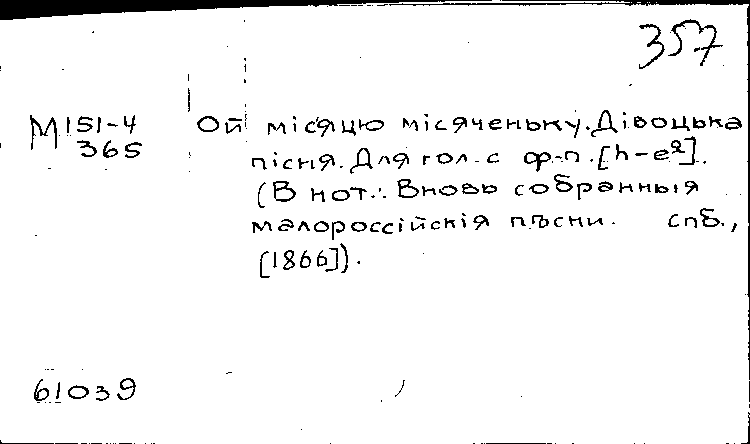 357
М151-4 Ой місяцю місяченьку. Дівоцька
365 пісня. Для гол. с ф-п. [h-e²].
(В нот.: Вновь собранныя
малороссійскія пѣсни. спб.,
[1866]).
61039